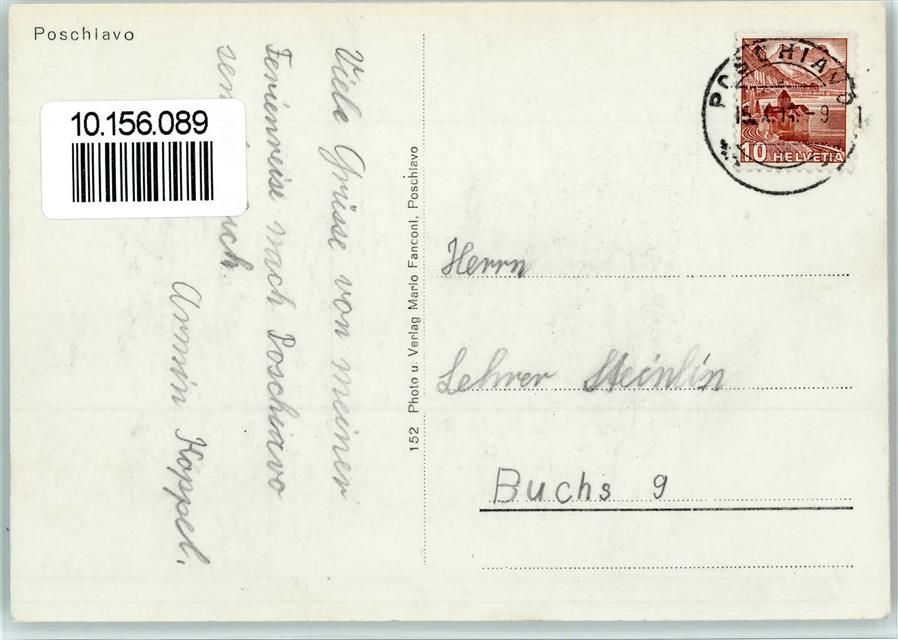 Poschiavo
10.156.089
Viele Grüsse von meiner
Ferienreise nach Poschiavo
Armin Köppel.
152 Photo u. Verlag Mario Fanconi, Poschiavo
POSCHIAVO
10 HELVETIA
Herrn
Lehrer Steinlin
Buchs 9